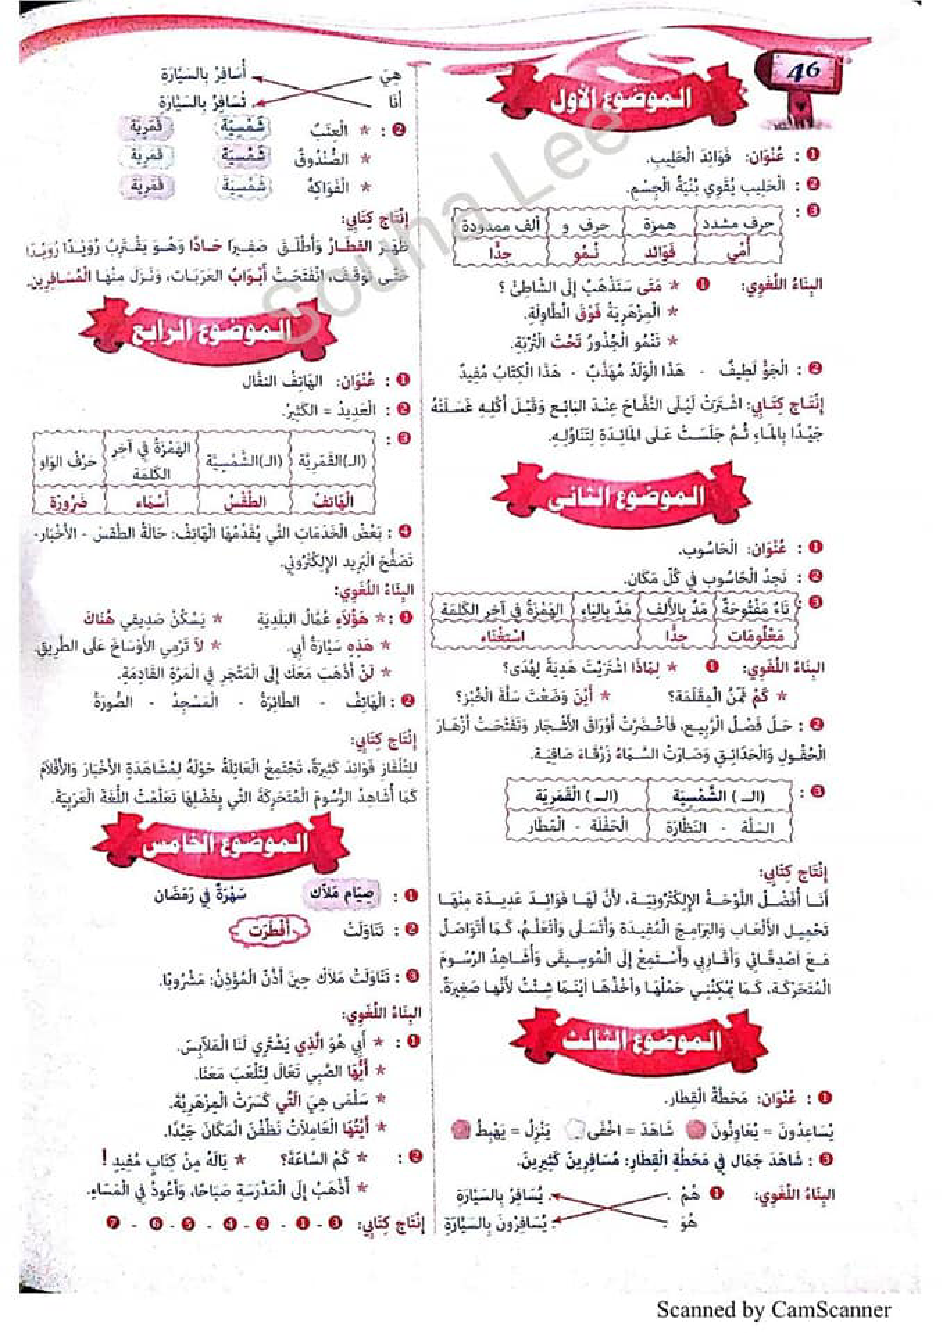 46
الموضوع الأول
❶ : عُنْوَان: فَوَائِدَ الْحَلِيبِ.
❷ : الْحَلِيب يُقَوِي بُنْيَةُ الْجِسْمِ.
❸ :
حرف مشدد همزة حرف و ألف ممدودة
أُمِّي فَوَائد نُمُو جِدًّا
البِنَاءُ اللُّغَوِي: ❶ * مَتَى سَتَذْهَبُ إِلَى الشَّاطِئْ ؟
* الْمِزْهَرِيَةُ فَوْقَ الْطَّاوِلَةِ.
* تَنْمُو الْجُذُورُ تَحْتَ التُّرْبَةِ.
❷ : الْجَوُّ لَطِيفٌ - هَذَا الْوَلَدُ مُهَذَّبٌ - هَذَا الْكِتَابُ مُفِيدٌ
إِنْتَاج كِتَابِي: اشْتَرَتْ لَيْلَى التُّفَّاحَ عِنْدَ البَائِعِ وَقَبْلَ أَكْلِهِ غَسَلَتْهُ
جَيْدًا بِالمَاءِ ثُمَّ جَلَسَتْ عَلَى المَائِدَةِ لِتَنَاوُلِهِ.
الموضوع الثاني
❶ : عُنْوَان: الْحَاسُوب.
❷ : نَجِدُ الْحَاسُوبِ فِي كُلِّ مَكَان.
❸ :
تَاءٌ مَفْتُوحَةٌ مَدٌ بِالأَلف مَدٌ بِاليَاءِ الهَمْزَةُ فِي آخِرِ الكَلِمَة
مَعْلُومَات جِدًّا اسْتِغْنَاء
البِنَاءُ اللُّغَوِي: ❶ * لِمَاذَا اشْتَرَيْتَ هَدِيَةً لِهُدَى؟
* كَمْ ثَمَنُ المِقْلَمَة؟ * أَيْنَ وَضَعْتَ سَلَّةَ الْخُبْزِ؟
❷ : حَلَّ فَصْلُ الرَّبِيعِ، فَاخْضَرَّتْ أَوْرَاقَ الأَشْجَار وَتَفَتَّحَتْ أَزْهَارَ
الْحُقُولِ وَالْحَدَائِقِ وَصَارَتْ السَّمَاءُ زَرْقَاءَ صَافِيَة.
❸ :
(الـ) الشَّمْسِيَّة (الـ) الْقَمَرِيَّة
السَّلَّة - النَظَّارَة الْحَفْلَة - الْمَطَار
إِنْتَاج كِتَابِي:
أَنَا أُفَضِّلُ اللَّوْحَةَ الإِلِكْتُرُونِيَّة، لأَنَّ لَهَا فَوَائِدَ عَدِيدَة مِنْهَا
تَحْمِيل الأَلْعَاب وَالبَرَامِج الْمُفِيدَة وَأَتَسَلَّى وَأَتَعَلَّمُ، كَمَا أَتَوَاصَلُ
مَعَ أَصْدِقَائِي وَأَقَارِبِي وَأَسْتَمِعُ إِلَى الْمُوسِيقَى وَأُشَاهِدُ الرُّسُومَ
الْمُتَحَرِّكَة، كَمَا يُمْكِنُنِي حَمْلُهَا وَأَخْذُهَا أَيْنَمَا شِئْتُ لأَنَّهَا صَغِيرَةٌ.
الموضوع الثالث
❶ : عُنْوَان: مَحَطَّةُ الْقِطَار.
يُسَاعِدُونَ = يُعَاوِنُونَ شَاهَدَ = اخْتَفَى يَنْزِلُ = يَهْبِطُ
❸ : شَاهَدَ جَمَال فِي مَحَطَّةِ القِطَارِ: مُسَافِرِينَ كَثِيرِينَ.
البِنَاءُ اللُّغَوِي: ❶ هُمْ . . يُسَافِرُ بِالسَيَّارَةِ
هُوَ . . يُسَافِرُونَ بِالسَيَّارَةِ
هِيَ أُسَافِرُ بِالسَيَّارَةِ
أَنَا تُسَافِرُ بِالسَيَّارَةِ
❷ : * الْعِنَبُ شَمْسِيَّة قَمَرِيَّة
* الصُّنْدُوقُ شَمْسِيَّة قَمَرِيَّة
* الْفَوَاكِهُ شَمْسِيَّة قَمَرِيَّة
إِنْتَاج كِتَابِي:
ظَهَرَ القطارُ وَأَطْلَقَ صَفِيرًا حَادًّا وَهُوَ يَقْتَرِبُ رُوَيْدًا رُوَيْدًا
حَتَّى تَوَقَّفَ، انْفَتَحَتْ أَبْوَابُ العَرَبَات، وَنَزَلَ مِنْهَا الْمُسَافِرِين.
الموضوع الرابع
❶ : عُنْوَان: الهَاتِفُ النَقَّال
❷ : الْعَدِيدُ = الْكَثِيْرُ.
❸ :
(الـ)القَمَرِيَّة (الـ)الشَّمْسِيَّة الهَمْزَةُ فِي آخِرِ الكَلِمَة حَرْفُ الوَاو
الْهَاتِفُ الطَّقْسُ أَسْمَاء ضَرُورَة
❹ : بَعْضُ الْخَدَمَاتِ الَّتِي يُقَدِّمُهَا الْهَاتِفُ: حَالَةُ الطَقْسِ - الأَخْبَار-
تَصَفُّحَ الْبَرِيد الإِلِكْتُرُونِي.
البِنَاءُ اللُّغَوِي:
❶ : * هَؤُلاَءِ عُمَّالُ البَلَدِيَةِ * يَسْكُنُ صَدِيقِي هُنَاكَ
* هَذِهِ سَيَّارَةُ أَبِي. * لاَ تَرْمِي الأَوْسَاخَ عَلَى الطَّرِيقِ.
* لَنْ أَذْهَبَ مَعَكَ إِلَى المَتْجَرِ فِي المَرَّةِ القَادِمَةِ.
❷ : الْهَاتِفُ - الطَّائِرَةُ - المَسْجِدُ - الصُّورَةُ
إِنْتَاج كِتَابِي:
لِلتِّلْفَازِ فَوَائد كَثِيرَةٌ، تَجْتَمِعُ الْعَائِلَةُ حَوْلَهُ لِمُشَاهَدَةِ الأَخْبَارِ وَالأَفْلاَمِ
كَمَا أُشَاهِدُ الرُّسُومَ الْمُتَحَرِّكَةَ الَّتِي بِفَضْلِهَا تَعَلَّمْتُ اللُّغَةَ الْعَرَبِيَّةَ.
الموضوع الخامس
❶ : صِيَام مَلاَك سَهْرَةٌ فِي رَمَضَان
❷ : تَنَاوَلَتْ أَفْطَرَتْ
❸ : تَنَاوَلَتْ مَلاَك حِينَ أَذَّنَ الْمُؤَذِّن: مَشْرُوبًا.
البِنَاءُ اللُّغَوِي:
❶ : * أَبِي هُوَ الَّذِي يَشْتَرِي لَنَا الْمَلاَبِسَ.
* أَيُّهَا الصَّبِي تَعَالَ لِتَلْعَبَ مَعَنَا.
* سَلْمَى هِيَ الَّتِي كَسَرَتْ الْمِزْهَرِيَّةَ.
* أَيَّتُهَا الْعَامِلاَتُ نَظِّفْنَ الْمَكَانَ جَيِّدًا.
❷ : * كَمْ السَّاعَةُ؟ * يَالَهُ مِنْ كِتَابٍ مُفِيدٍ !
* أَذْهَبُ إِلَى الْمَدْرَسَةِ صَبَاحًا، وَأَعُودُ فِي الْمَسَاءِ.
إِنْتَاج كِتَابِي: ❸ - ❶ - ❷ - ❹ - ❺ - ❻ - ❼
Souha Lee
Scanned by CamScanner